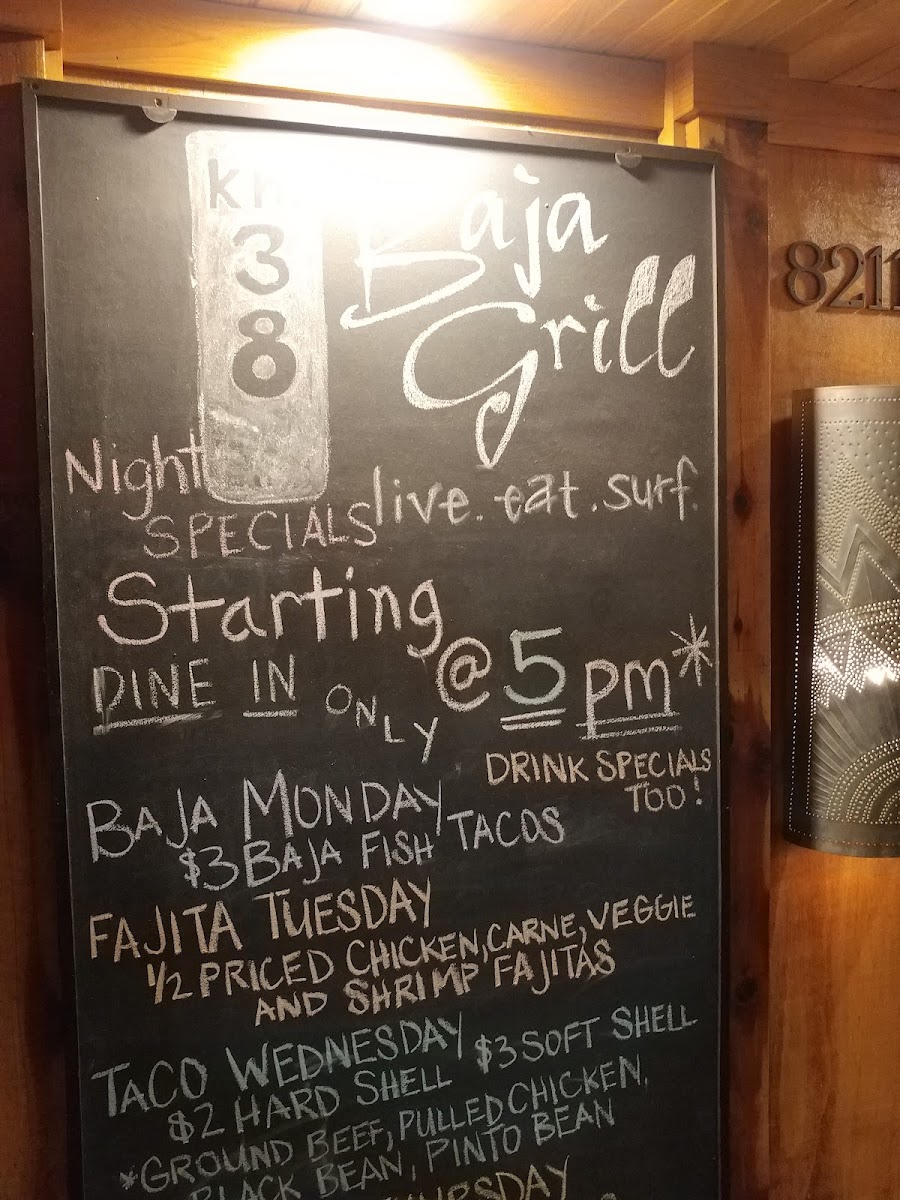 km
38
Baja
Grill
8211
live. eat. surf.
Night
SPECIALS
Starting
@ 5 pm*
DINE IN ONLY
DRINK SPECIALS
TOO!
BAJA MONDAY
$3 BAJA FISH TACOS
FAJITA TUESDAY
1/2 PRICED CHICKEN, CARNE, VEGGIE
AND SHRIMP FAJITAS
TACO WEDNESDAY
$2 HARD SHELL $3 SOFT SHELL
*GROUND BEEF, PULLED CHICKEN,
BLACK BEAN, PINTO BEAN
THURSDAY